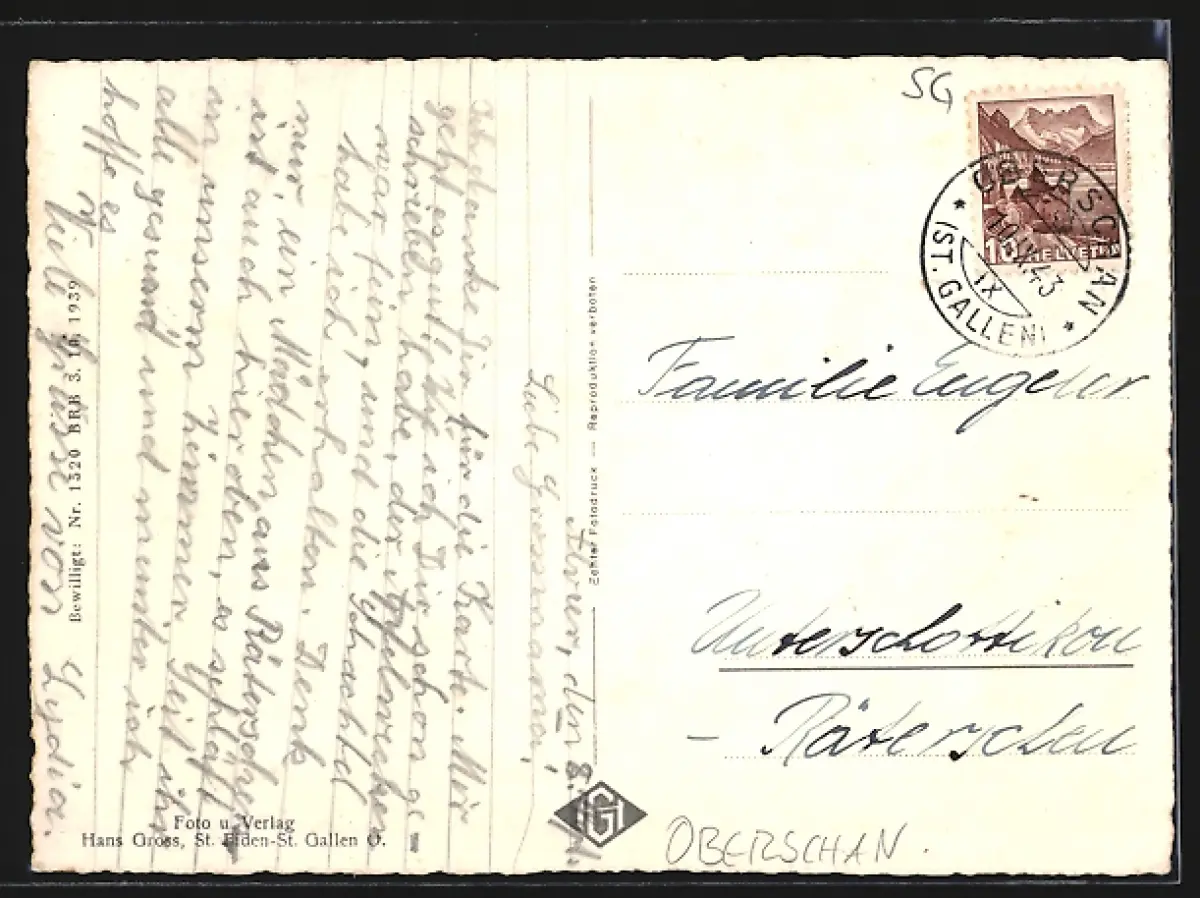 SG
HELVETIA
10
OBERSCHAN
10.IX.43
IX
* (ST. GALLEN) *
Familie Engeler
Unterschottikon
- Räterschen
OBERSCHAN.
Echter Fotodruck — Reproduktion verboten
Bewilligt: Nr. 1320 BRB 3. 10. 1939
Foto u. Verlag
Hans Gross, St. Fiden-St. Gallen O.
den 8.
Liebe Grossmama!
Ich danke Dir für die Karte. Mir
geht es gut. Wie ich Dir schon ge-
schrieben habe, der Apfelkuchen
war fein, und die Schachtel
habe ich erhalten. Denk
nur, ein Mädchen aus Räterschen
ist auch hier oben, es schläft
in unserem Zimmer. Seid ihr
alle gesund und munter ich
hoffe es
Viele Grüsse von Lydia.